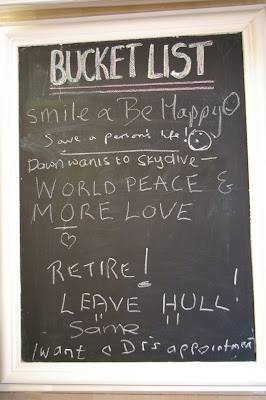 BUCKET LIST
smile & Be Happy
Save a person's life!
Down wants to skydive -
WORLD PEACE &
MORE LOVE
RETIRE!
LEAVE HULL!
Same
I want a Dr's appointment